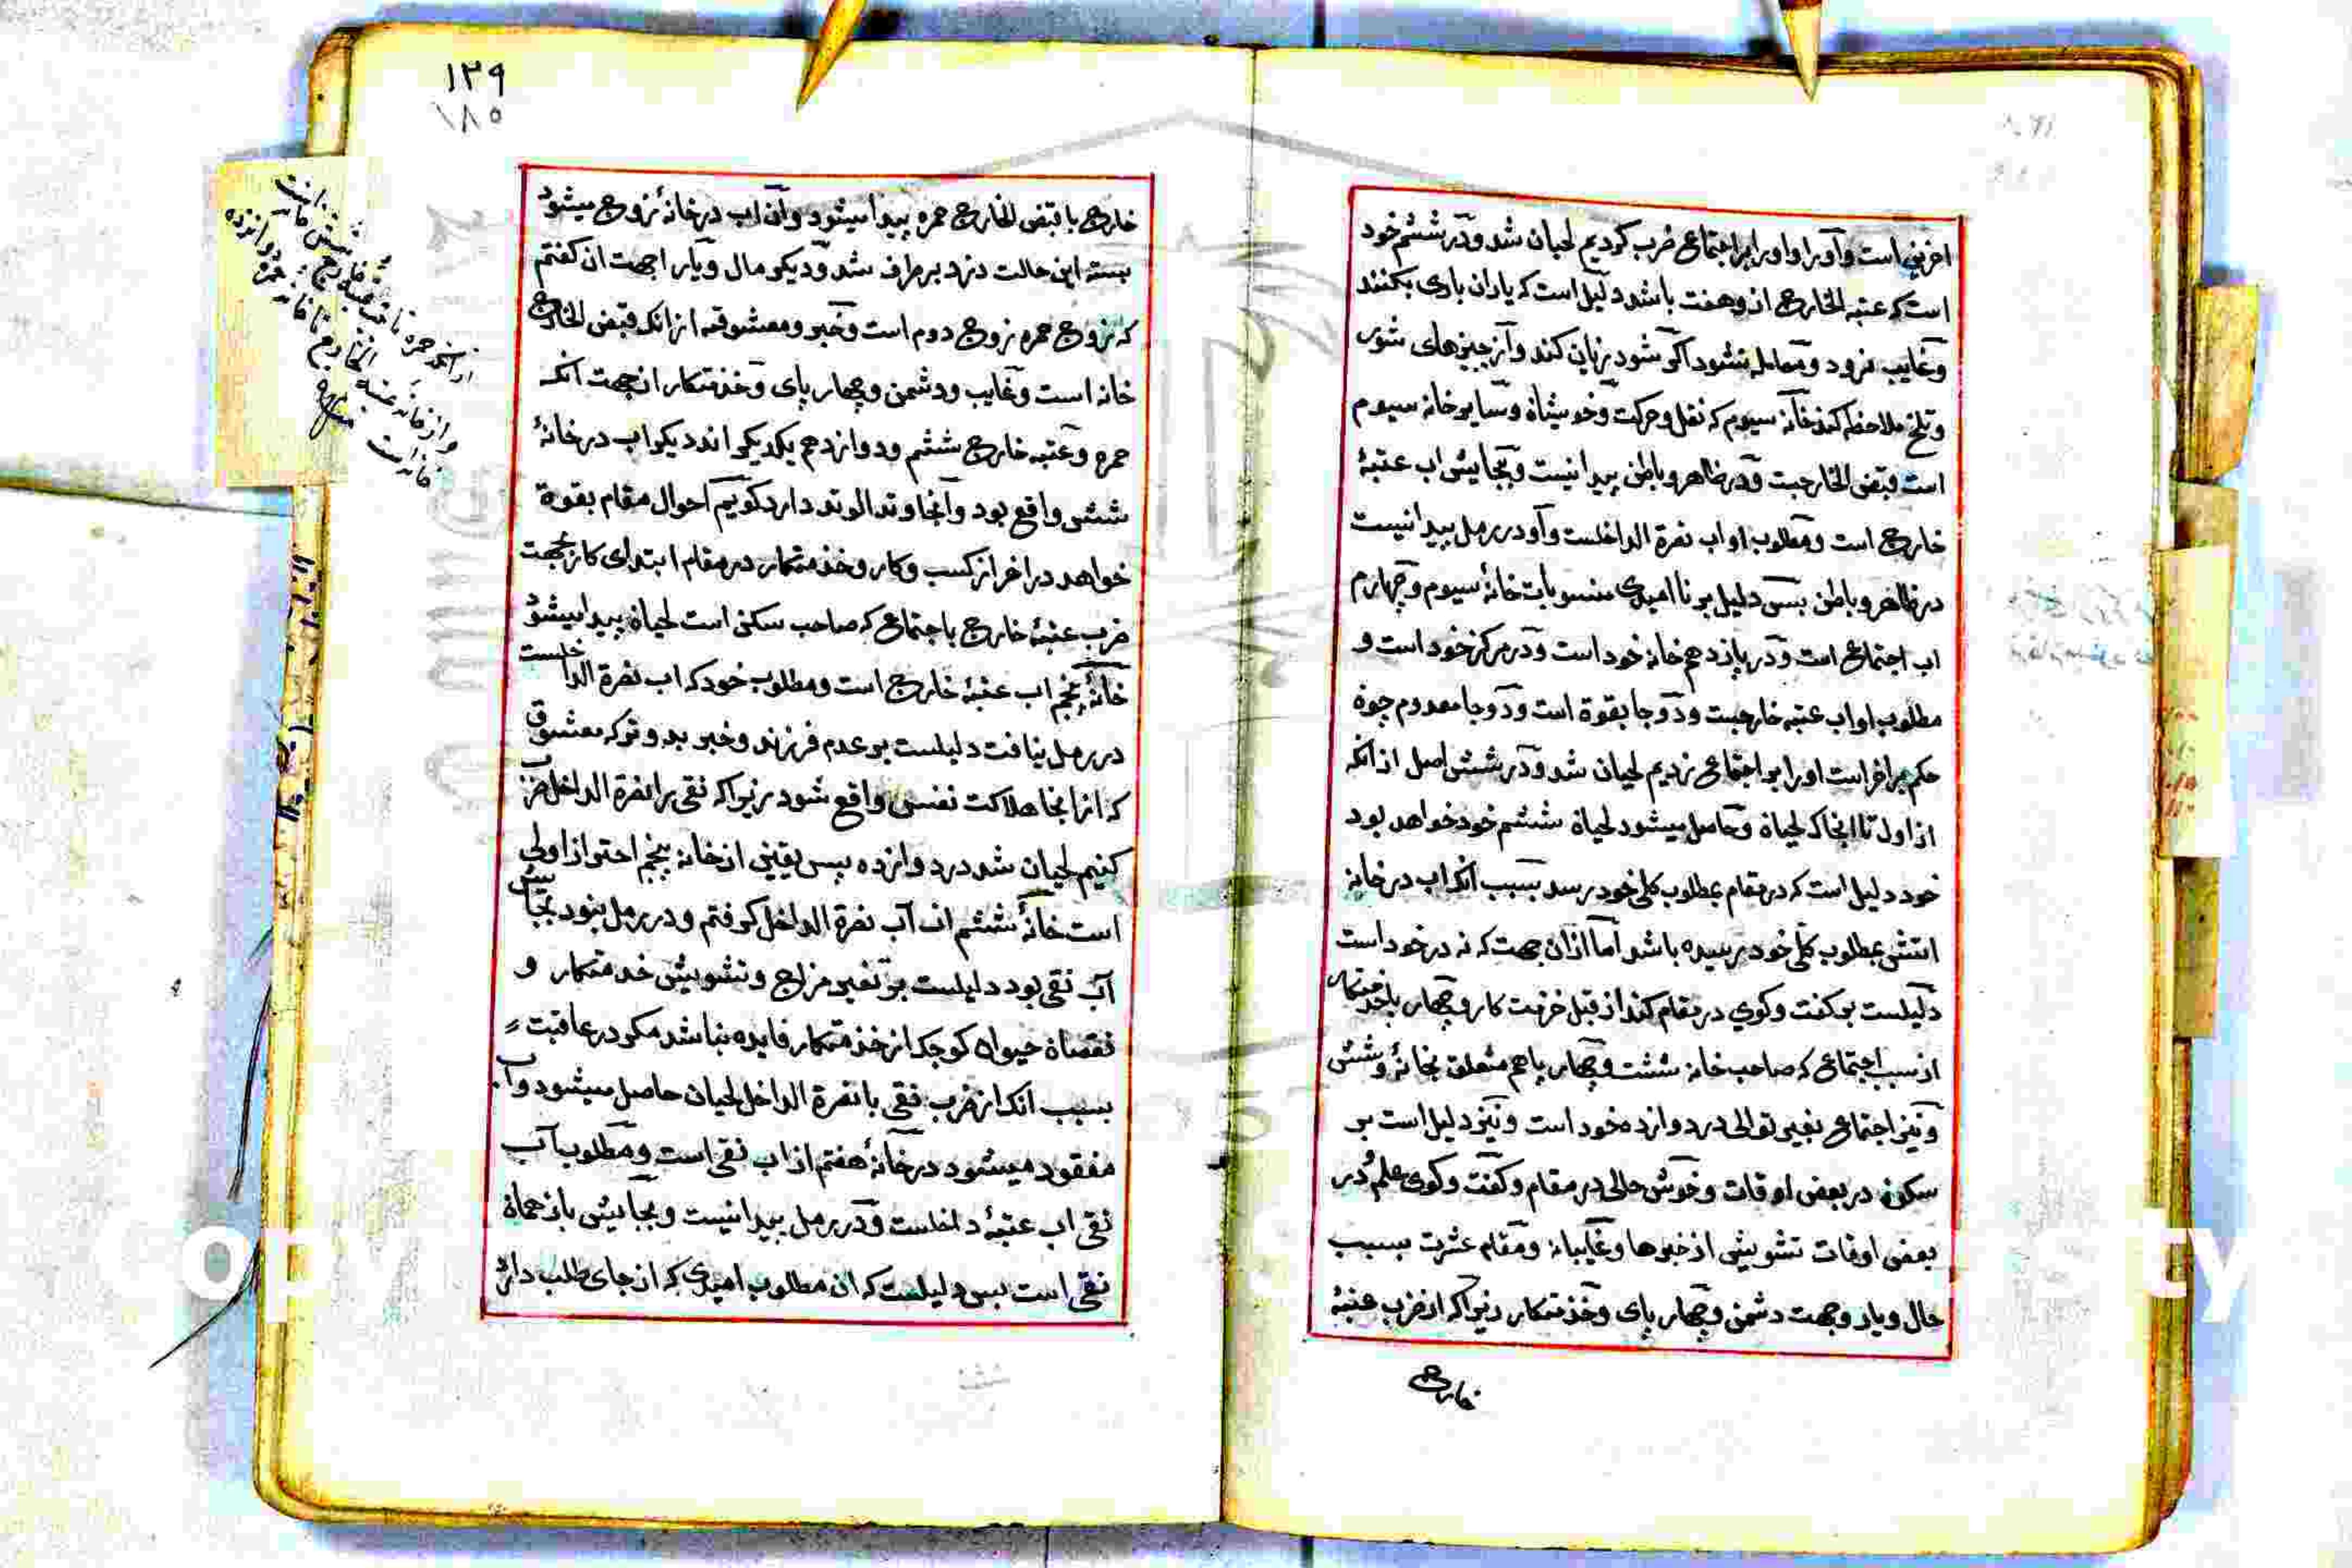 اخرین است و آورا و اورا برا اجتماع ضرب کردیم لحیان شد و در ششم خود
است که عتبه الخارج از و هفت باشد دلیل است که یاران یاری بکنند
و غایب نرود و معامله نشود اگر شود زیان کند و از چیزهای شور
و تلخ ملاحظه کند خانه سیوم که نقل و حرکت و خویشان و سایر خانه سیوم
است قبض الخارجیت و در ظاهر و باطن پیدا نیست و بجایش اب عتبهٔ
خارج است و مطلوب او اب نصرة الداخلست و آو در رمل پیدا نیست
در ظاهر و باطن بس دلیل بر نا امیدی منسوبات خانهٔ سیوم و چهارم
اب اجتماع است و در پانزدهم خانه خود است و در مرکز خود است و
مطلوب او اب عتبه خارجیت و دو جا بقوة است و دو جا معدوم چون
حکم بر اخر است اورا بر اجتماع زدیم لحیان شد و در شش اصل از انکه
از اول تا اینجا که لحیان و حاصل میشود لحیان ششم خود خواهد بود
خود دلیل است که در مقام بمطلوب کلی خود رسد بسبب انکه اب در خانه
اتشی بمطلوب کلی خود رسیده باشد اما از ان جهت که نه در خود است
دلیلست بر گفت و گوی در مقام کند از قبل خدمت کار و چهار پا
از سبب اجتماع که صاحب خانه ششت و چهار پا هم متعلق بخانهٔ و شش
و نیز اجتماع بغیر توالی در دوازده خود است و نیز دلیل است بر
سکون در بعض اوقات و خوش حالی در مقام و گفت و گوی علم در
بعض اوقات تشویش از خبرها و غایبانه و مقام عشرت بسبب
حال و یار و جهت دشمن و چهار پای و خذمتکار زیرا که از ضرب عتبهٔ
خارج
۱۳۹
۱۸۵
خارج با قبض الخارج حمره پیدا میشود و آن اب در خانهٔ زوج میشود
بسته این حالت دزد بر طرف شد و دیگر مال و یار را جهت ان گفتم
که زوج حمره زوج دوم است و خبر و معشوقه از انکه قبض الخارج
خانه است و غایب و دشمن و چهار پای و خذمتکار از جهت انکه
حمره و عتبه خارج ششم و دوازدهم یکدیگر اند دیگر اب در خانهٔ
شش واقع بود و آنجا وتد الوتد دارد گویم احوال مقام بقوة
خواهد در اخر از کسب و کار و خذمتکار در مقام ابتدای کار بجهت
ضرب عتبهٔ خارج با اجتماع که صاحب سکن است لحیان پیدا میشود
خانهٔ پنجم اب عتبهٔ خارج است و مطلوب خود که اب نصرة الداخلست
در رمل نیافت دلیلست بر عدم فرزند و خبر بد و ترک معشوق
که از انجا هلاکت نفس واقع شود زیرا که نقی را نصرة الداخل ضرب
کنیم لحیان شد در دوازده پس یقین از خانه پنجم احتراز اولی
است خانهٔ ششم اب نصرة الداخل گرفتم و در رمل نبود بجایش
آب نقی بود دلیلست بر تغیر مزاج و تشویش خدمتکار و
نقصان حیوان کوچک از خذمتکار فایده نباشد مگر در عاقبت
بسبب انکه از ضرب نقی با نصرة الداخل لحیان حاصل میشود و آب
مفقود میشود در خانهٔ هفتم از اب نقی است و مطلوب آب
نقی اب عتبهٔ داخلست و در رمل پیدا نیست و بجایش باز همان
نقی است پس دلیلست که ان مطلوب امیدی که از جای طلب دارد